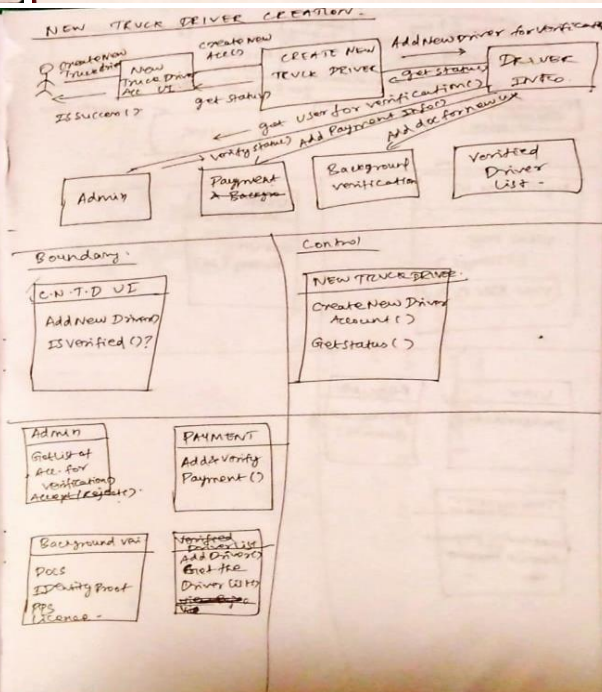 NEW TRUCK DRIVER CREATION.
Create New
Truck driver
IsSuccess()?
New
Truck Driver
Acc UI
Create New
Acc()
get status
CREATE NEW
TRUCK DRIVER
Add New Driver for verificati
get status
DRIVER
INFO.
get user for verification()
verify status()
Add Payment Info()
Add doc for new
Admin
Payment
Background
verification
Verified
Driver
List -
Boundary.
C.N.T.D UI
Add New Driver()
IsVerified()?
Control
NEW TRUCK DRIVER.
Create New Driver
Account()
GetStatus()
Admin
GetList of
Acc. for
verification()
Accept/Reject().
PAYMENT
Add & Verify
Payment()
Background veri
DOCS
IDentity Proof
PPS
Licence -
Verified
Driver List
Add Driver()
Get the
Driver List()